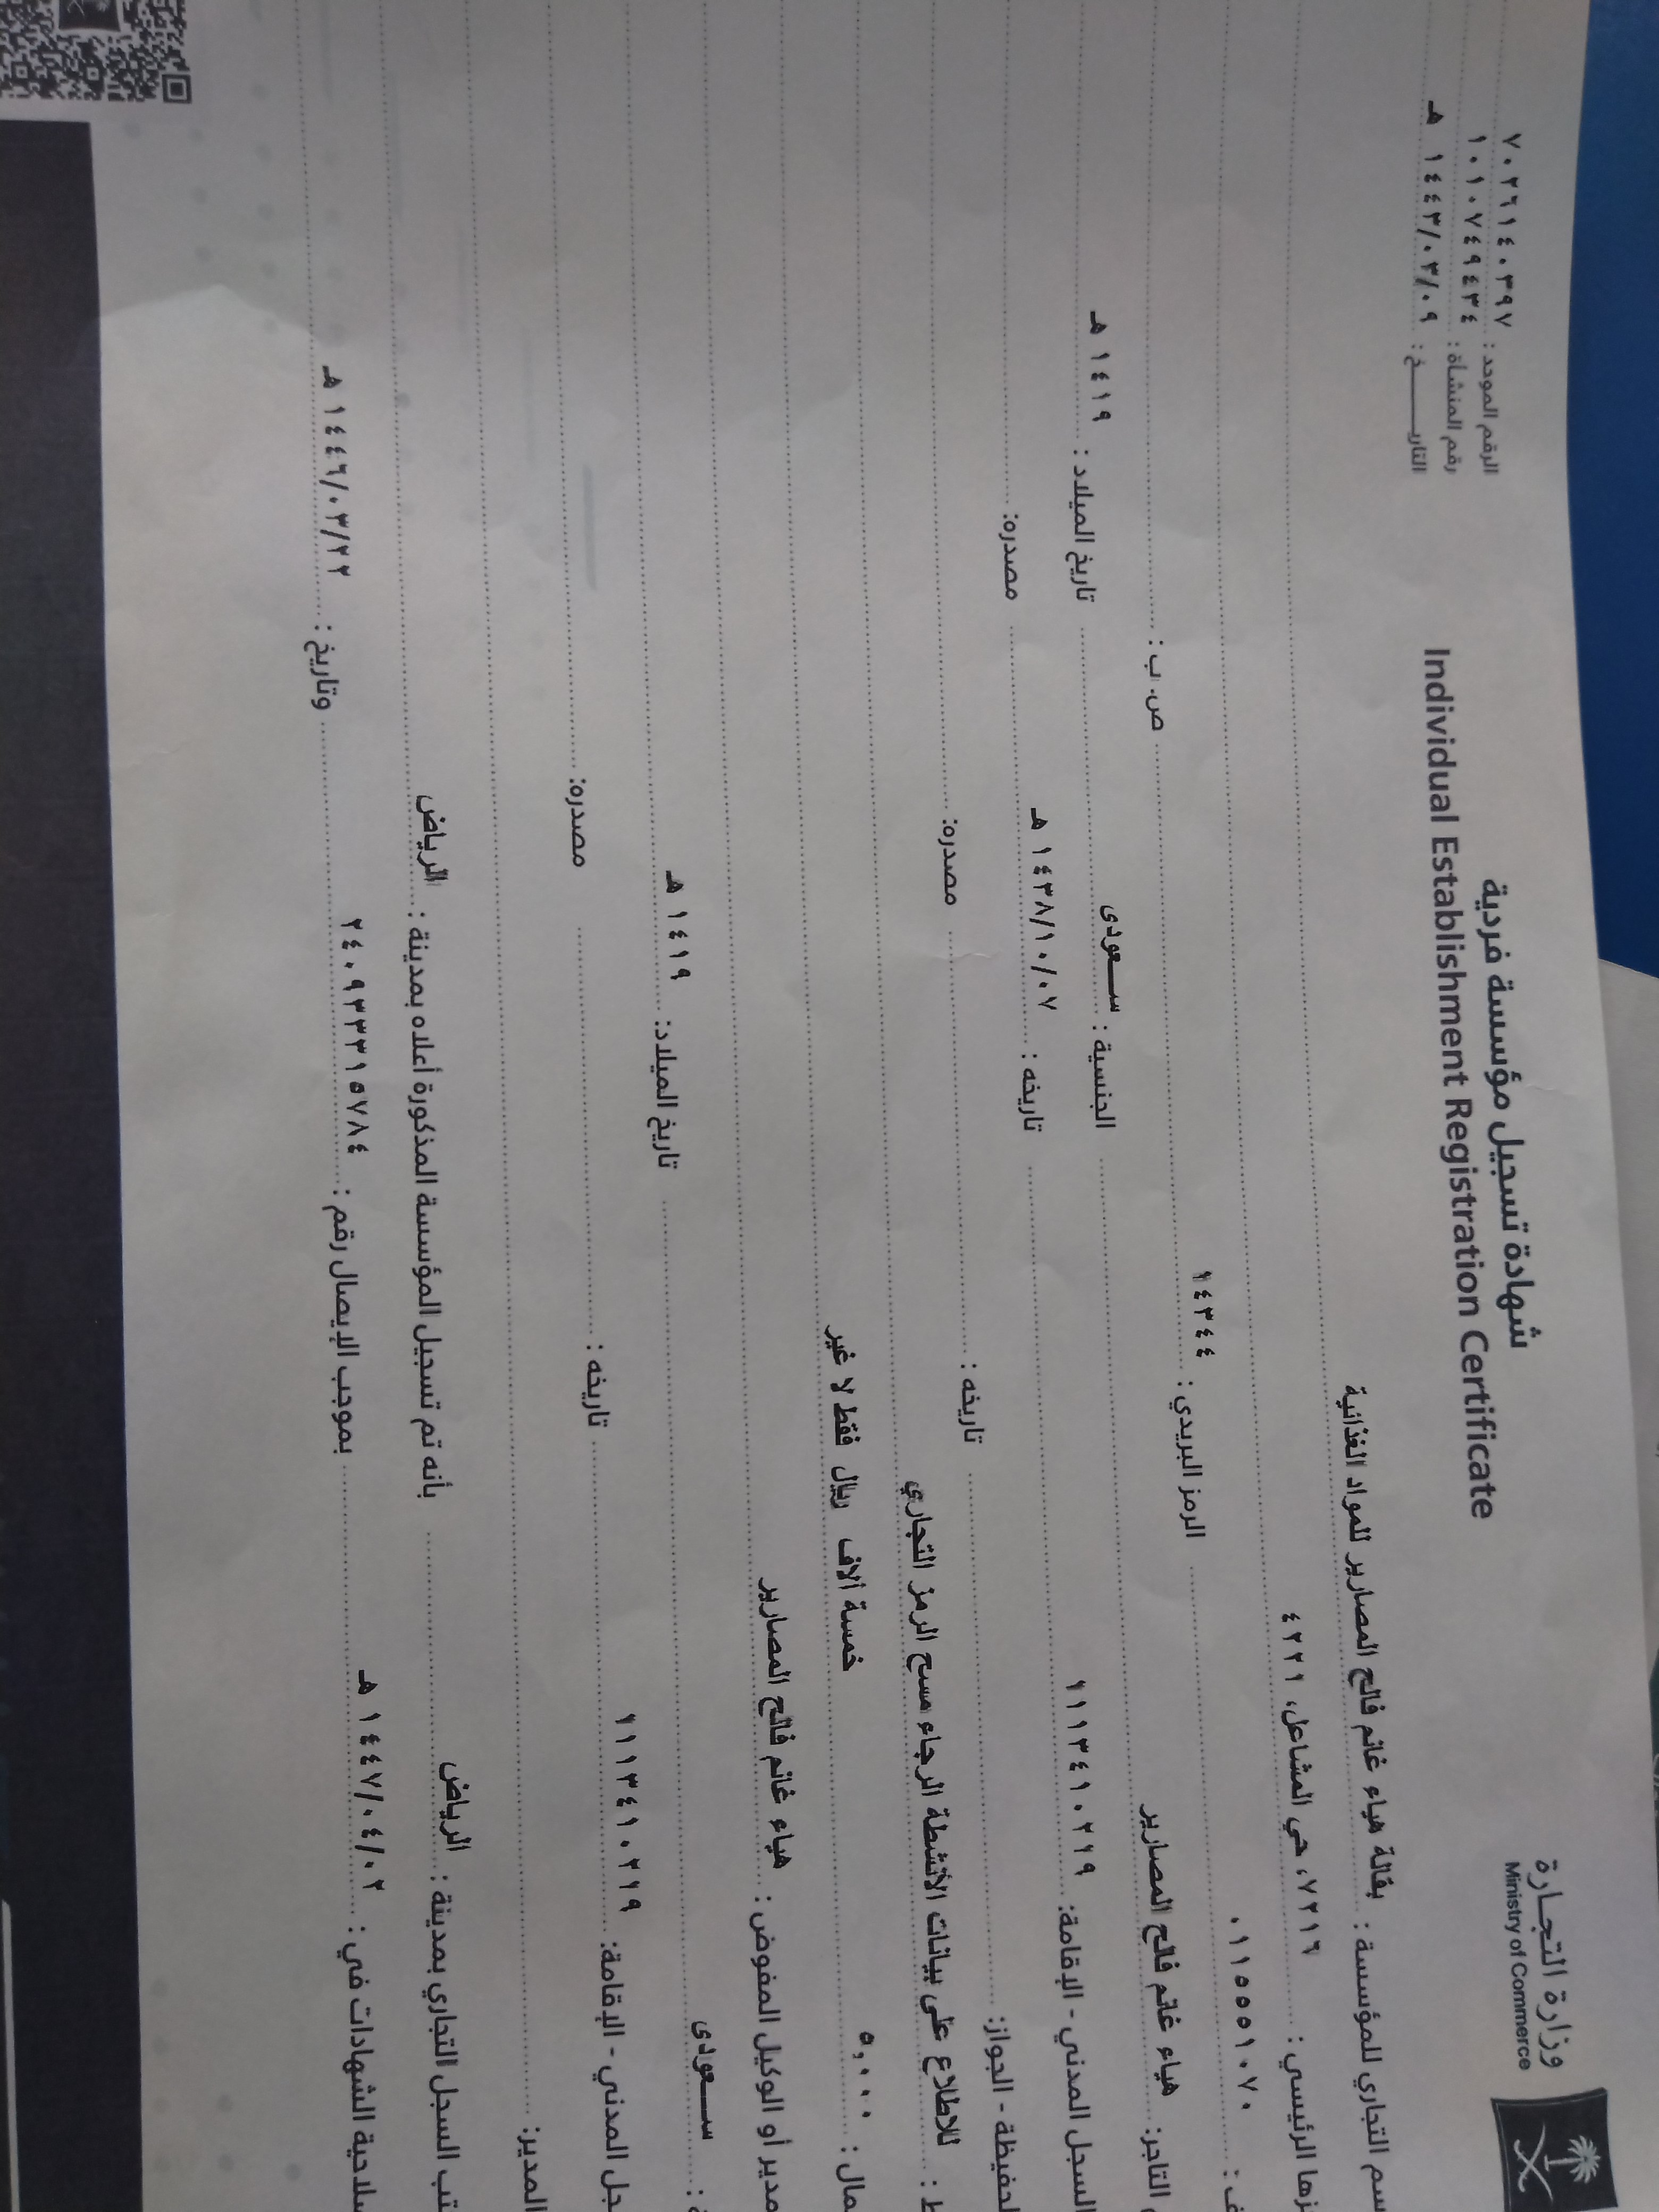 وزارة التجـارة
Ministry of Commerce
شهادة تسجيل مؤسسة فردية
Individual Establishment Registration Certificate
الرقم الموحد : ٧٠٢٦١٤٠٣٩٧
رقم المنشأة : ١٠١٠٧٤٩٤٣٤
التاريـــــخ : ١٤٤٣/٠٣/٠٩ هـ
سم التجاري للمؤسسة : بقالة هياء غانم فالح المصارير للمواد الغذائية
زها الرئيسي : ٧٢١٦، حي المشاعل، ٤٢٢١
ف : ٠١١٥٥٥١٠٧٠ الرمز البريدي : ١٤٣٤٤ ص. ب :
التاجر: هياء غانم فالح المصارير الجنسية : سـعودى تاريخ الميلاد : ١٤١٩ هـ
السجل المدني - الإقامة: ١١١٣٤١٠٢١٩ تاريخه : ١٤٣٨/١٠/٠٧ هـ مصدره:
لحفيظة - الجواز: تاريخه : مصدره:
ط : للاطلاع على بيانات الأنشطة الرجاء مسح الرمز التجاري
مال : ٥,٠٠٠ خمسة آلاف ريال فقط لا غير
مدير أو الوكيل المفوض : هياء غانم فالح المصارير
ة : سـعودى تاريخ الميلاد: ١٤١٩ هـ
جل المدني - الإقامة: ١١١٣٤١٠٢١٩ تاريخه : مصدره:
المدير:
تب السجل التجاري بمدينة : الرياض بأنه تم تسجيل المؤسسة المذكورة أعلاه بمدينة : الرياض
سلاحية الشهادات في : ١٤٤٧/٠٤/٠٢ هـ بموجب الإيصال رقم : ٢٤٠٩٣٣٣١٥٧٨٤ وتاريخ : ١٤٤٦/٠٣/٢٢ هـ